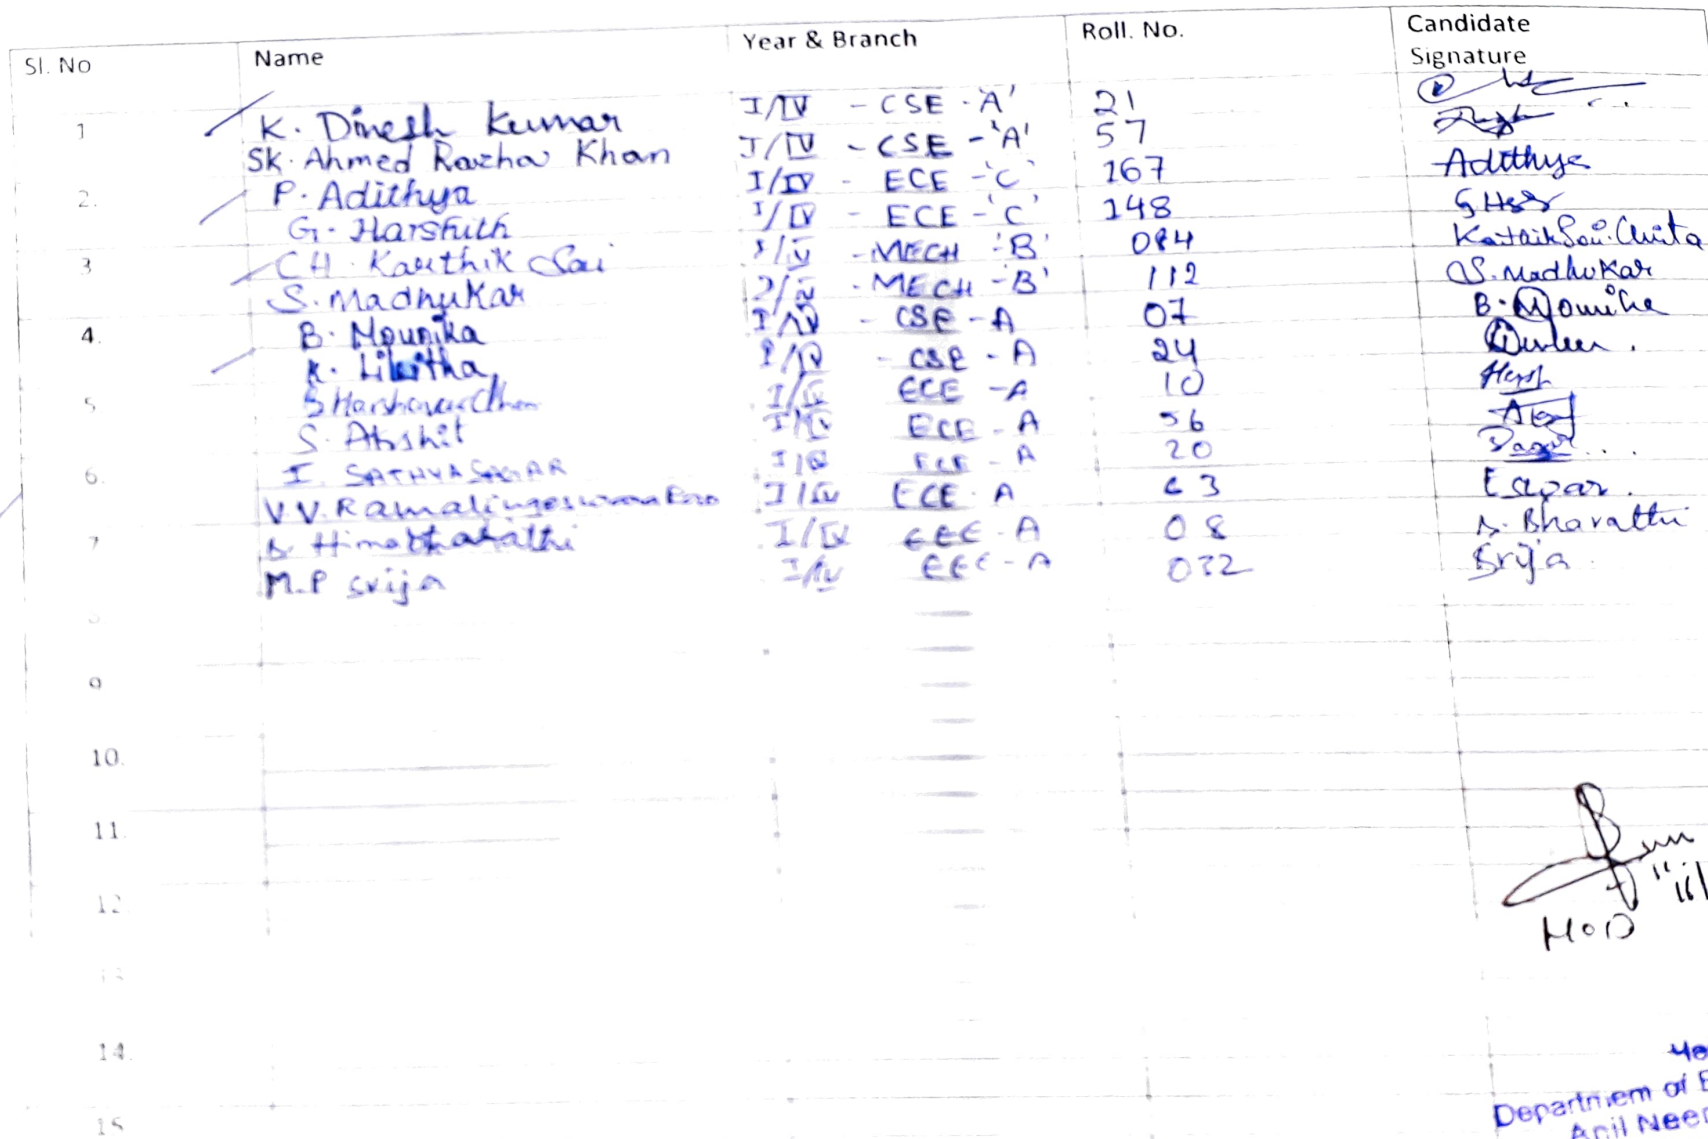 Sl. No Name Year & Branch Roll. No. Candidate Signature
1 K. Dinesh Kumar I/IV - CSE - 'A' 21
Sk. Ahmed Razha Khan I/IV - CSE - 'A' 57
2. P. Adithya I/IV - ECE - 'C' 167 Adithya
G. Harshith I/IV - ECE - 'C' 148
3 CH. Karthik Sai I/IV - MECH - 'B' 084 Karthik Sai
S. Madhukar I/IV - MECH - 'B' 112 S. Madhukar
4. B. Mounika I/IV - CSE - A 07 B. Mounika
K. Likitha I/IV - CSE - A 24
5 I/IV ECE - A 10
S. Akshit I/IV ECE - A 56
6. I. SATHYA SAGAR I/IV ECE - A 20
V V. I/IV ECE - A 63
7 I/IV EEE - A 08 Bharathi
M.P Srija I/IV EEE - A 032 Srija
9
10.
11.
12
13
14.
15
HOD
Department of
Anil